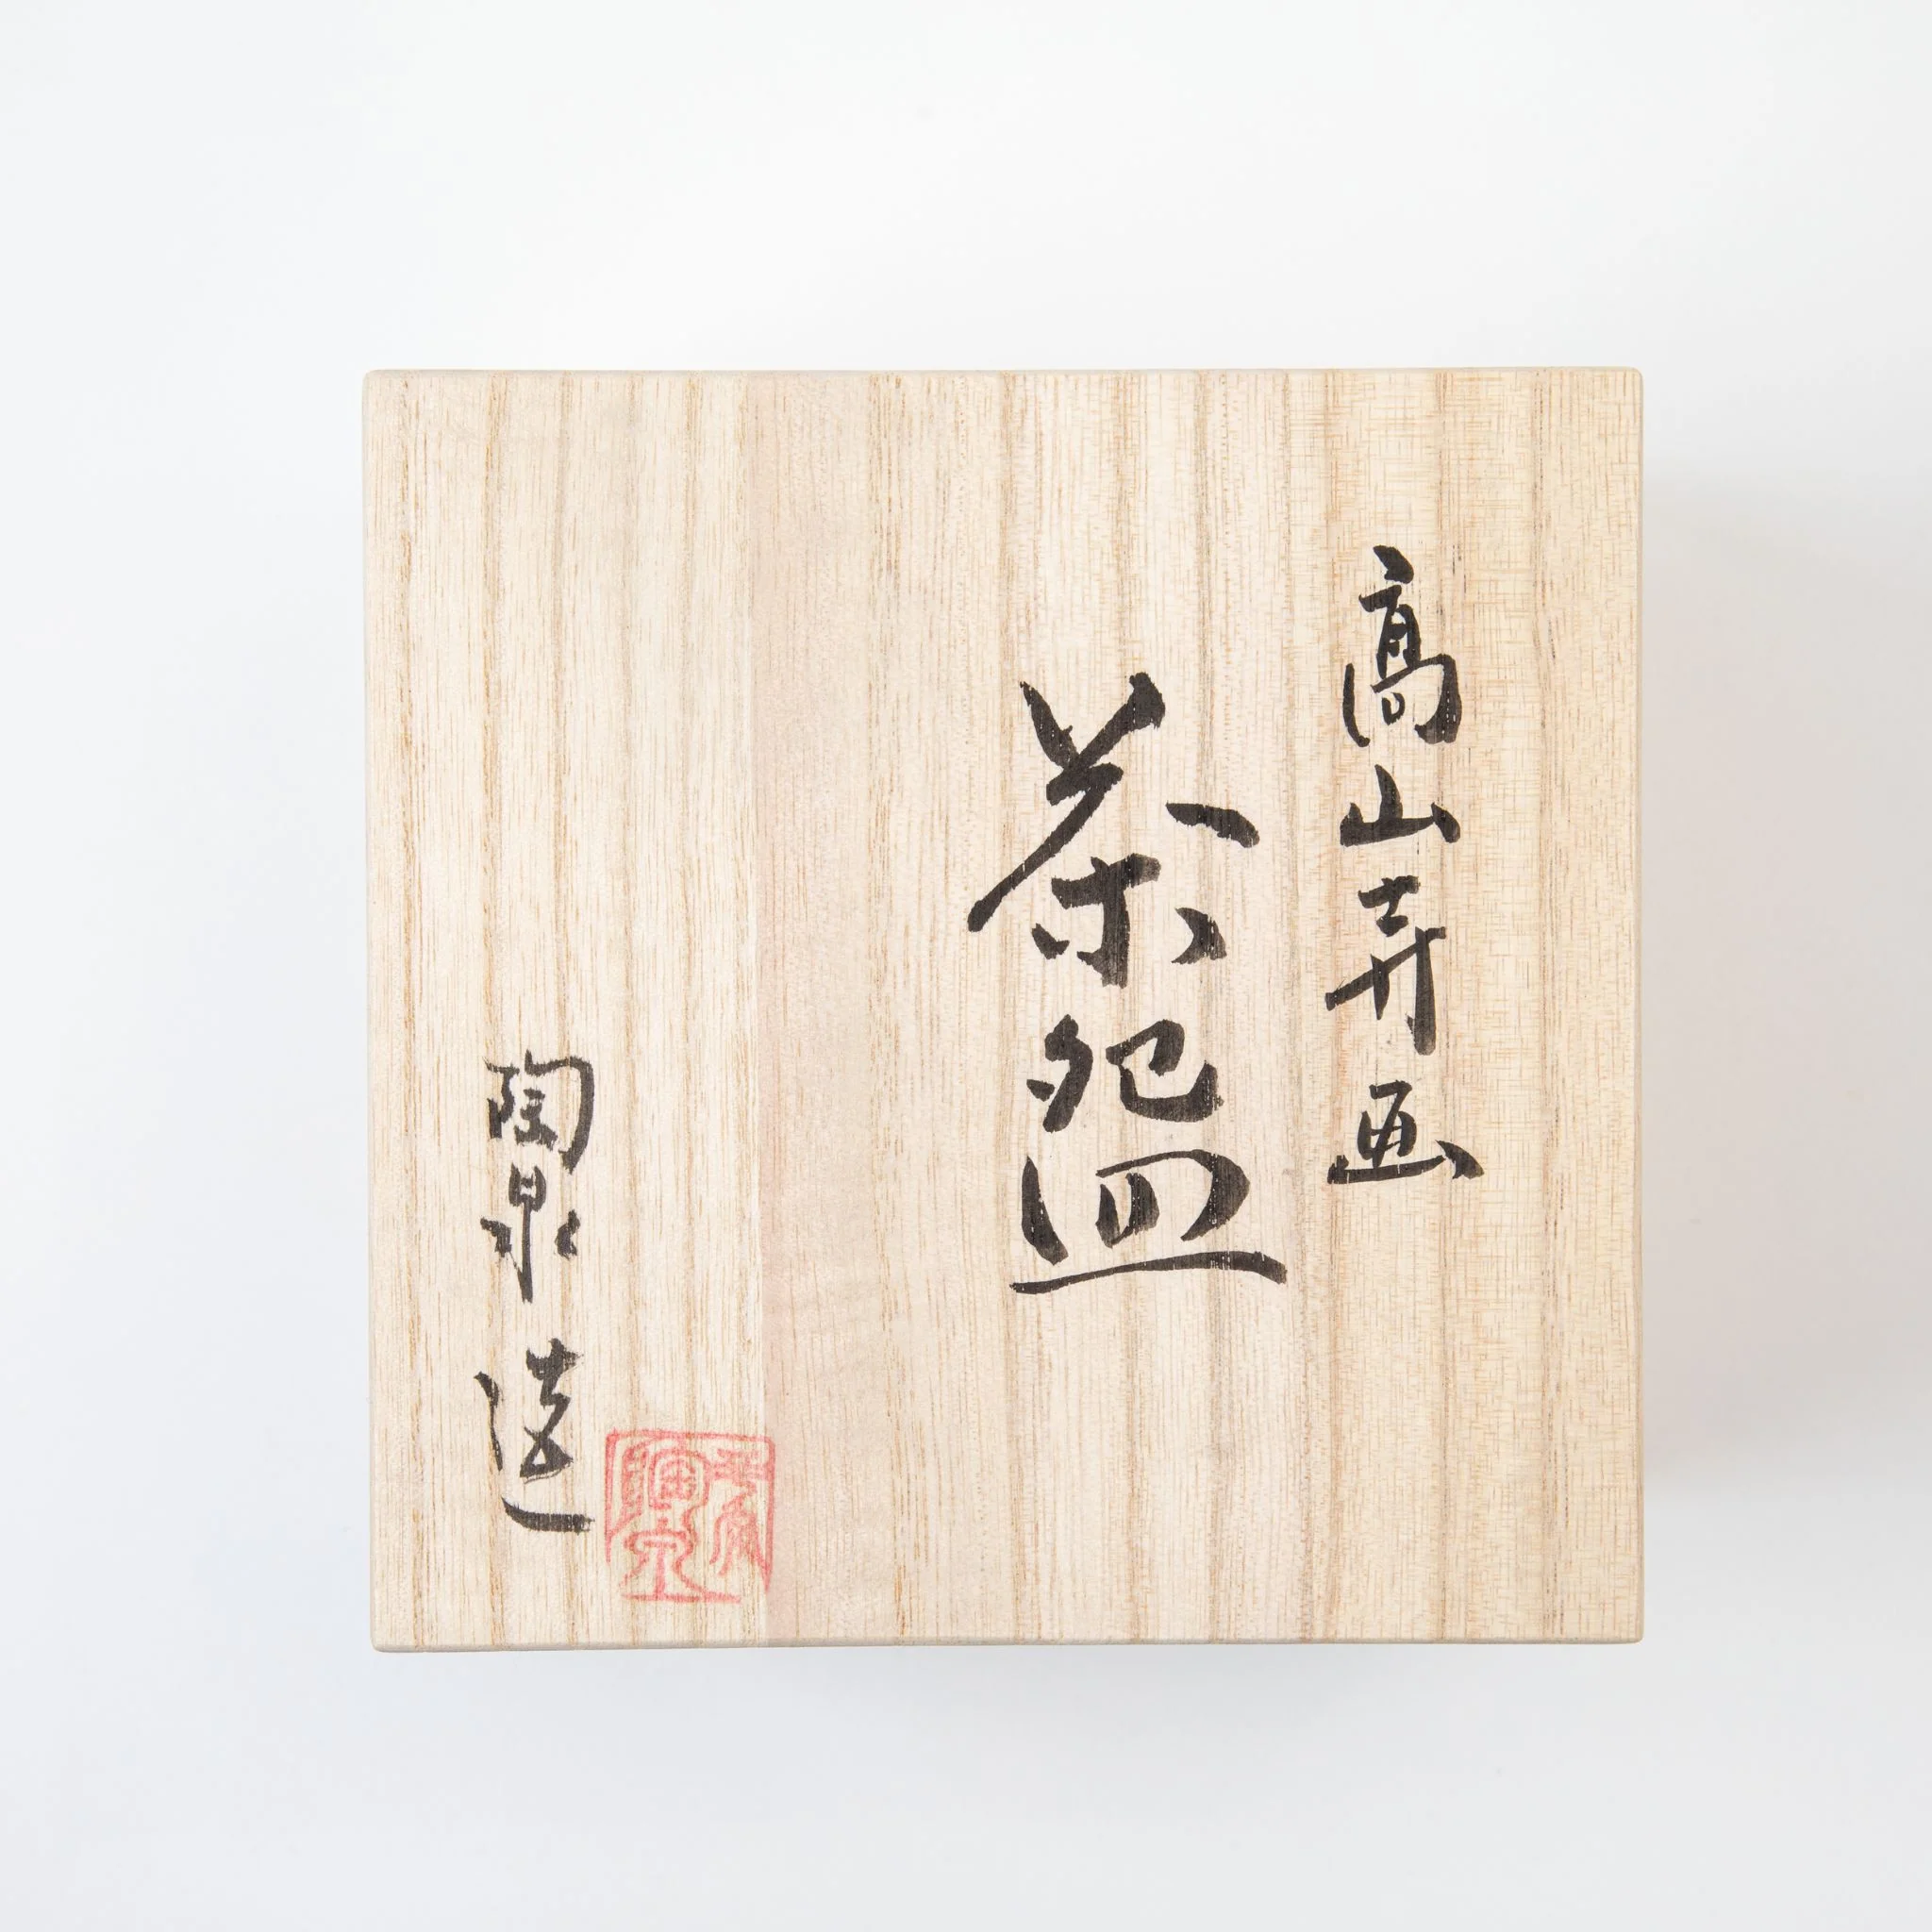 高山寺画
茶盌
陶泉造